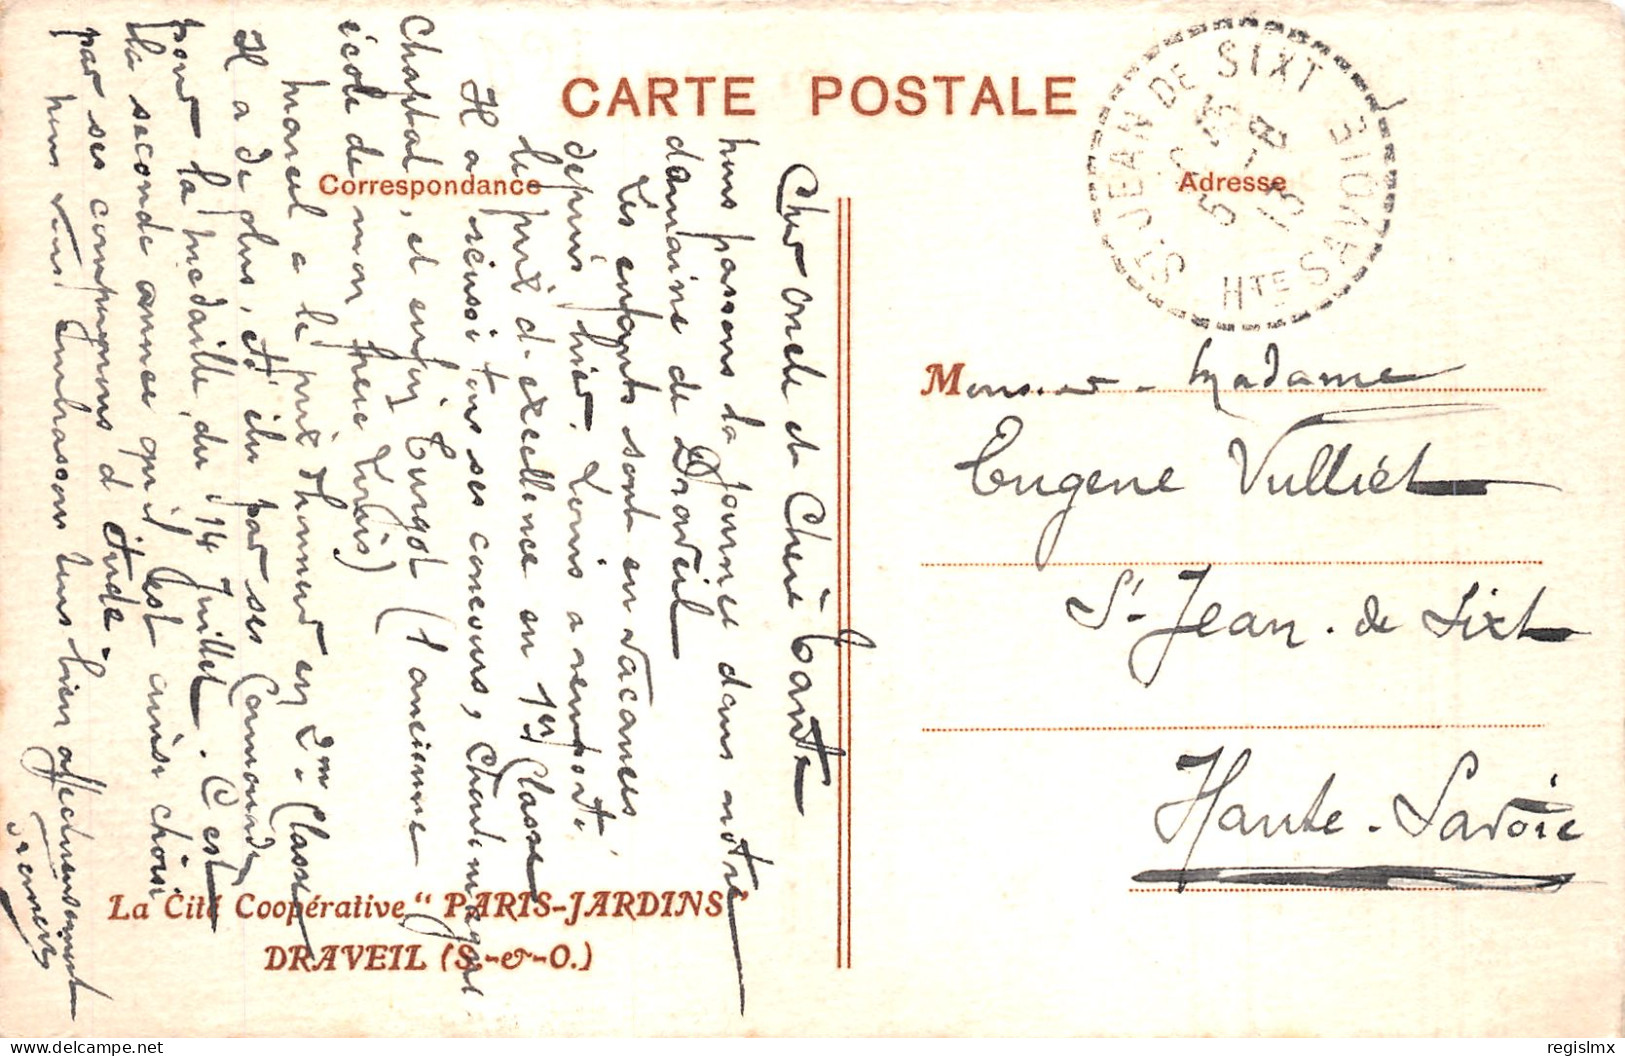 CARTE POSTALE
Correspondance
Adresse
ST JEAN DE SIXT
HTE SAVOIE
Cher oncle et Chère Tante
nous passons la journée dans notre
domaine de Draveil
Les enfants sont en vacances
depuis hier. Louis a remporté
le prix d'excellence en 1re Classe
Il a réussi tous ses concours,
Chaptal, et enfin Turgot (l'ancienne
école de mon frère Louis)
Marcel a le prix d'honneur en 2me Classe
Il a de plus, été élu par ses Camarades
pour la médaille du 14 Juillet. C'est
la seconde année qu'il est ainsi choisi
par ses compagnons d'étude
nous vous embrassons tous bien affectueusement
Monsieur - Madame
Eugène Vulliet
St-Jean-de Sixt
Haute-Savoie
La Cité Coopérative "PARIS-JARDINS"
DRAVEIL (S.-&-O.)
delcampe.net
regislmx